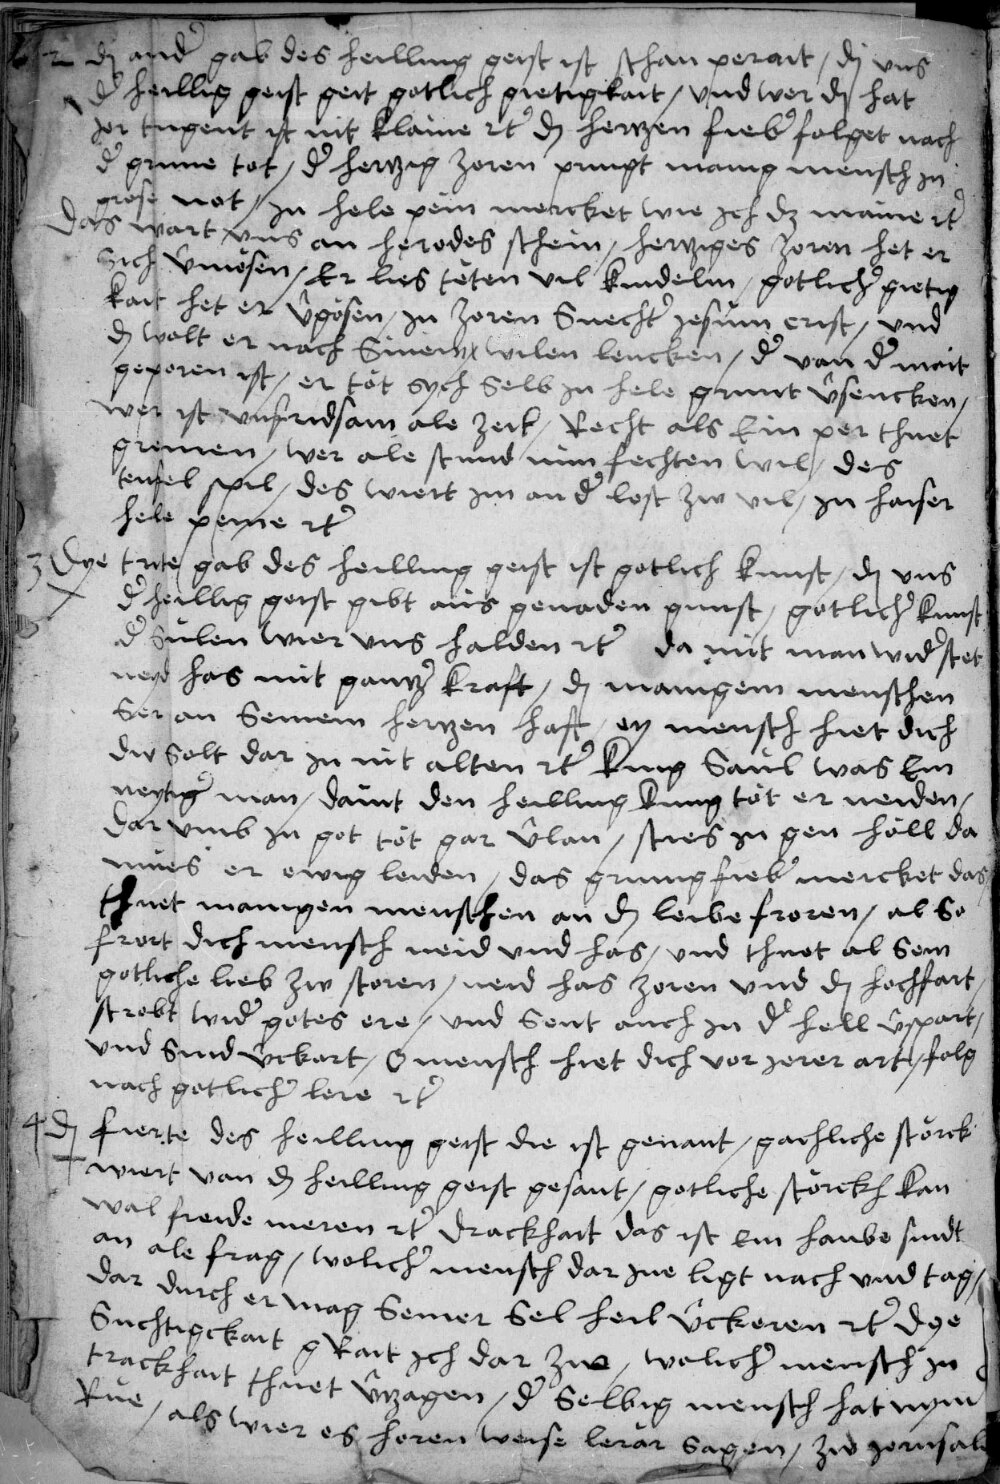 2 dy ander gab des heilling geist ist schan perait / dy uns
der heillig geist geit gotlich gietigkait / und wer dy hat
jer tugent ist nit klaine rc dy hertzen fieber folget nach
der grime tot / der hertzig zoren pringt manig mensch in
grose not / in hele pein mercket wie ich dz maine rc
das wart uns an herodes schein / hertziges zoren het er
sich vermösen / Er lies töten vil kindelin / gotlicher gietig
kait het er vergösen / in zoren suecht er jesum crist / und
dy wolt er nach sinem wilen lencken / der van der mait
geporen ist / er töt sych selb in hele grunt versencken /
wer ist unfridsam ale zeit / Recht als Ein per thuet
gremen / wer ale stund nun fechten wil / des
teufel spil / des wiert im an der lest zw vil / in haiser
hele peine rc
3 Dye trite gab des heilling geist ist gotlich kunst / dy uns
der heillig geist gibt aus genaden gunst / gotlicher kunst
der sülen wier uns halden rc da mit man widerstet
neyd has mit gantzer kraft / dy manigem menschen
ser an seinem hertzen haft / ey mensch hiet dich
dw solt dar in nit alten rc King Saul was Ein
neytiger man / davit den heilling kunig töt er neiden /
dar umb in got töt gar verlan / sties in gen höll da
mues er ewig leiden / das grimig fieber mercket das /
thuet manigen menschen an dy leibe froren / al so
frort dich mensch neid und has / und thuet al sein
gotliche lieb zw storen / neid has zoren und dy hochfart /
strebt wider gotes ere / und sent auch in der hell verspart /
und sind verckart / O mensch hiet dich vor jerer art / folg
nach gotlicher lere rc
4 dy fierte des heilling geist die ist genant / gachliche störck
wiert van dy heilling geist gesant / gotliche störckh kan
wal freide meren rc drackhait das ist Ein haube sindt
an ale frag / welicher mensch dar ine ligt nach und tag /
dar durch er mag seiner sel heil verckeren rc dye
suchtigckait g Rait ich dar zwe / welicher mensch in
trackhait thuet verzagen / der selbig mensch hat nym
Rue / als wier es horen weise lerär sagen / zw jerusal